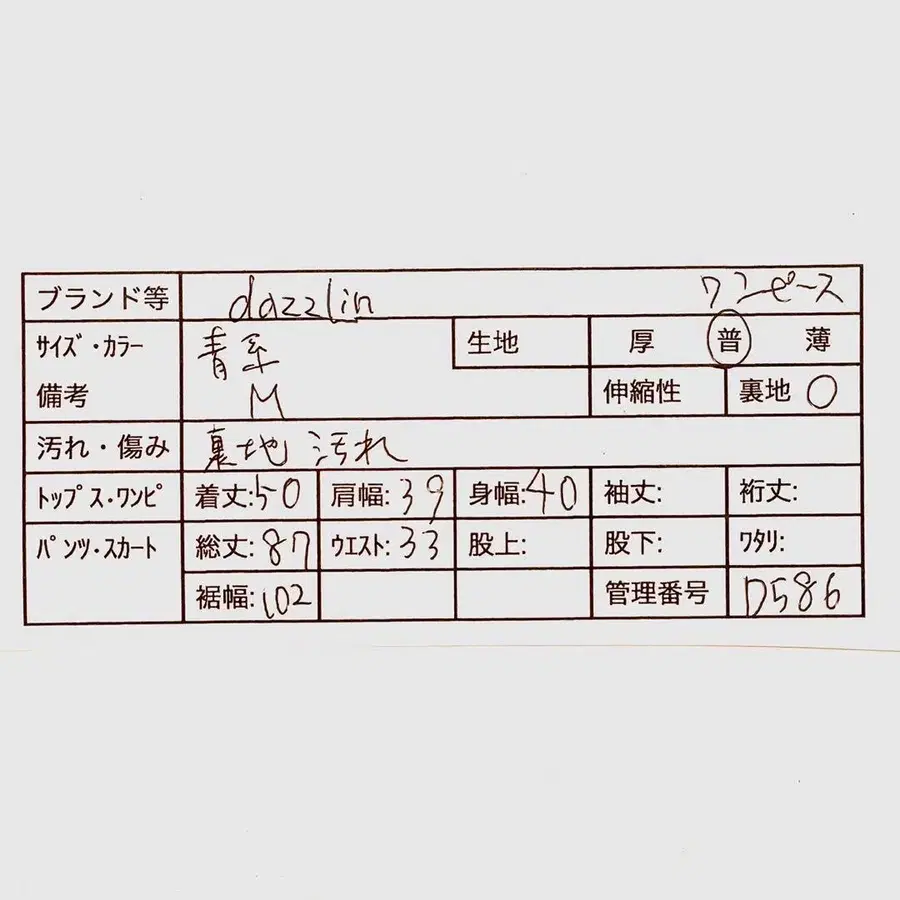 ブランド等 dazzlin ワンピース
サイズ・カラー 青系 生地 厚 普 薄
備考 M 伸縮性 裏地 ○
汚れ・傷み 裏地 汚れ
トップス・ワンピ 着丈:50 肩幅:39 身幅:40 袖丈: 裄丈:
パンツ・スカート 総丈:87 ウエスト:33 股上: 股下: ワタリ:
裾幅:102 管理番号 D586